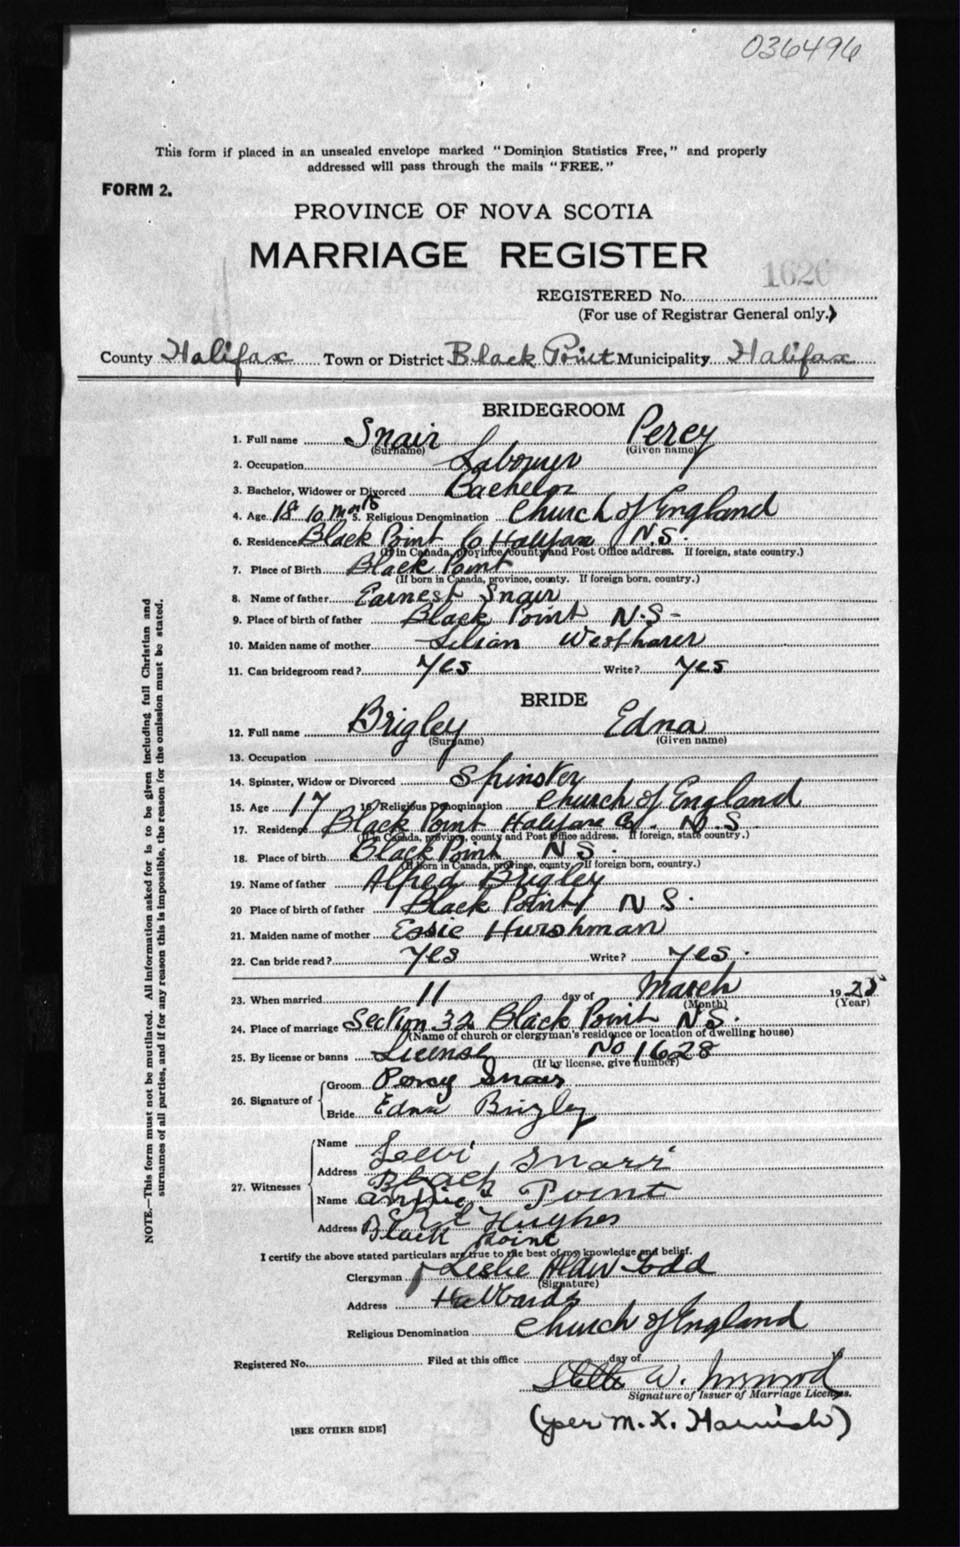 036496
This form if placed in an unsealed envelope marked "Dominion Statistics Free," and properly
addressed will pass through the mails "FREE."
FORM 2.
PROVINCE OF NOVA SCOTIA
MARRIAGE REGISTER
1626
REGISTERED No.
(For use of Registrar General only.)
County Halifax Town or District Black Point Municipality Halifax
BRIDEGROOM
1. Full name Snair Percy
(Surname) (Given name)
2. Occupation Labourer
3. Bachelor, Widower or Divorced Bachelor
4. Age 18 10 Mnts 5. Religious Denomination Church of England
6. Residence Black Point Co Halifax N.S.
(If in Canada, province, county and Post Office address. If foreign, state country.)
7. Place of Birth Black Point
(If born in Canada, province, county. If foreign born, country.)
8. Name of father Earnest Snair
9. Place of birth of father Black Point N.S-
10. Maiden name of mother Lilian Westhaver
11. Can bridegroom read? Yes Write? Yes
BRIDE
12. Full name Brigley Edna
(Surname) (Given name)
13. Occupation
14. Spinster, Widow or Divorced Spinster
15. Age 17 16 Religious Denomination Church of England
17. Residence Black Point Halifax Co. N.S
(If in Canada, province, county and Post Office address. If foreign, state country.)
18. Place of birth Black Point N S.
(If born in Canada, province, county. If foreign born, country.)
19. Name of father Alfred Brigley
20 Place of birth of father Black Point N S.
21. Maiden name of mother Essie Hurshman
22. Can bride read? Yes Write? Yes.
23. When married 11 day of March 19
(Month) (Year)
24. Place of marriage Section 32 Black Point N.S.
(Name of church or clergyman's residence or location of dwelling house)
25. By license or banns License No 1628
(If by license, give number)
26. Signature of
Groom Percy Snair
Bride Edna Brigley
27. Witnesses
Name Levi Snarr
Address Black Point
Name Hughes
Address Black Point
I certify the above stated particulars are true to the best of my knowledge and belief.
Clergyman Leslie Todd
(Signature)
Address Hubbards
Religious Denomination Church of England
Registered No. Filed at this office day of 19
W.
Signature of Issuer of Marriage Licenses.
(per M. K. Harnish)
[SEE OTHER SIDE]
NOTE.—This form must not be mutilated. All information asked for is to be given including full Christian and
surnames of all parties, and if for any reason this is impossible, the reason for the omission must be stated.